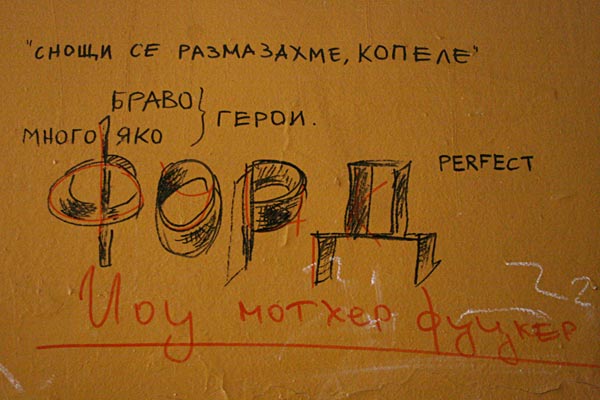 "СНОЩИ СЕ РАЗМАЗАХМЕ, КОПЕЛЕ"
БРАВО
ГЕРОИ.
МНОГО ЯКО
PERFECT
ФОРД
Иоу мотхер фуцкер
2